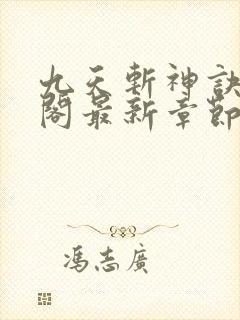 九天斬神訣
閣最新章節
馮志廣